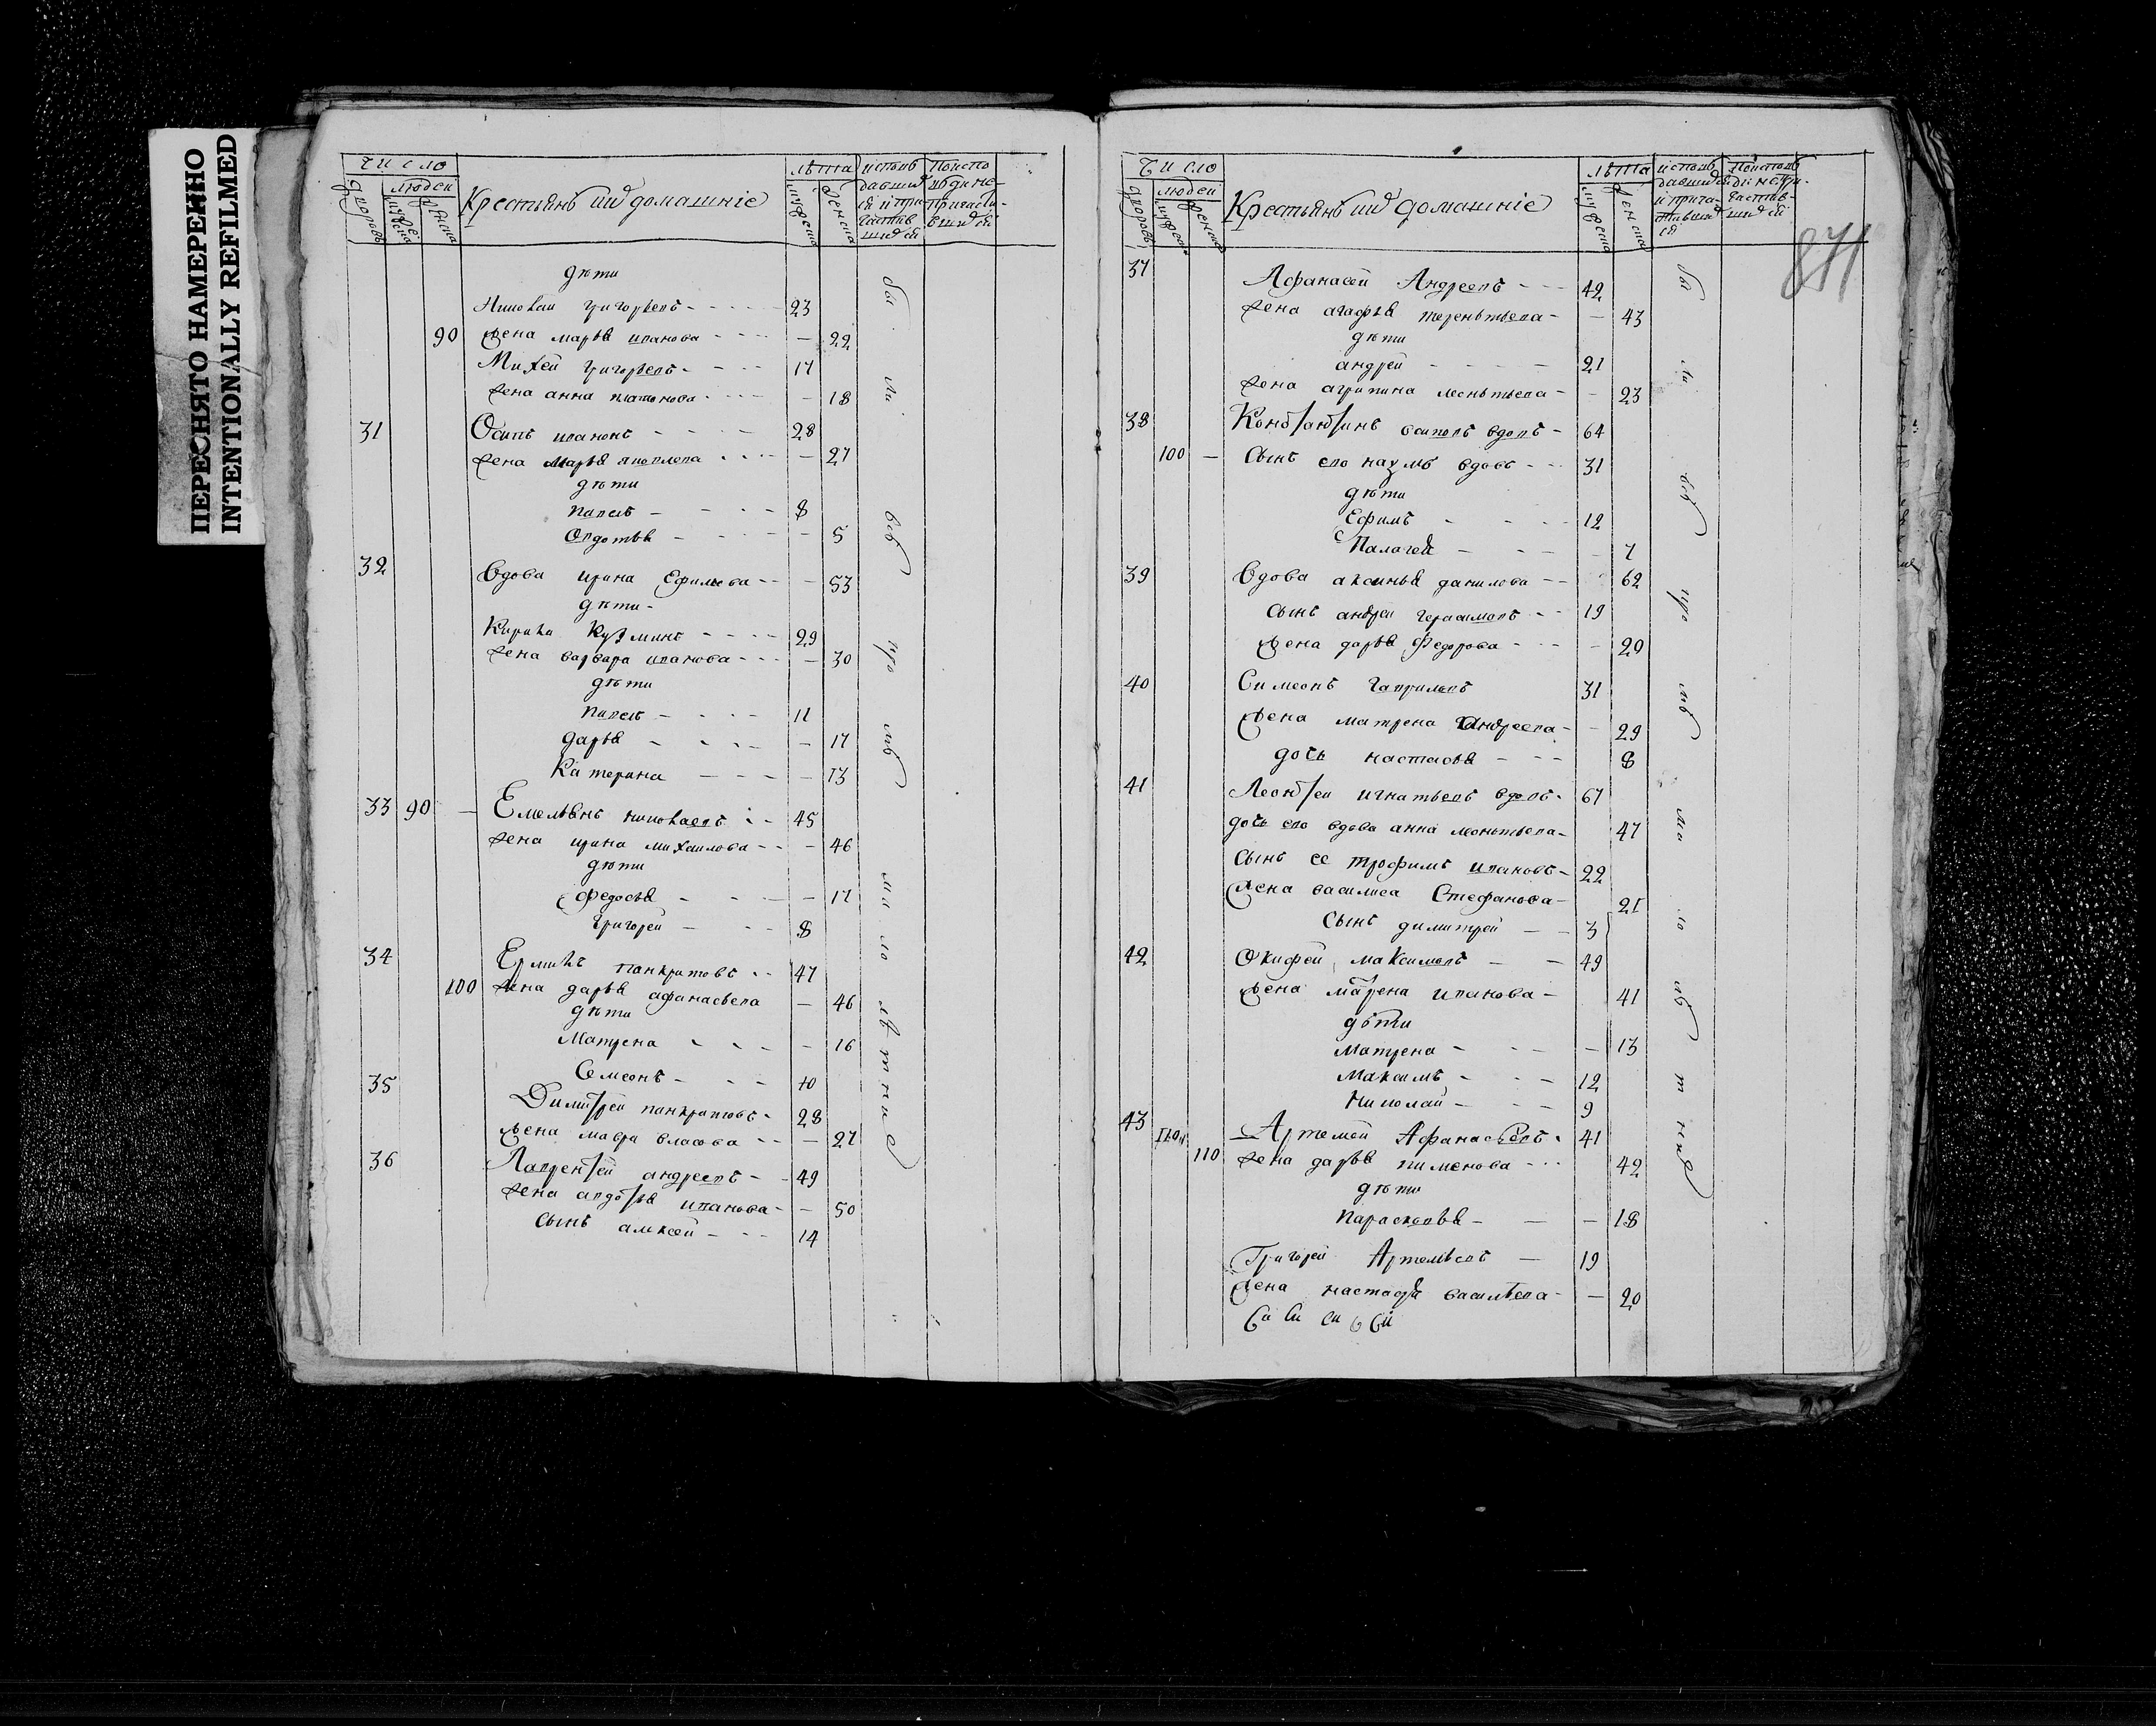 ПЕРЕСНЯТО НАМЕРЕННО
INTENTIONALLY REFILMED
число
людей
Крестьянъ ихъ домашніе
лѣта
дѣти
Николай григорьевъ 23
90 жена марья иванова 22
Михей григорьевъ 17
жена анна платонова 18
31 Осипъ ивановъ 28
жена марья яковлева 27
дѣти
павелъ 8
Овдотья 5
32 Вдова ирина Ефимова 53
дѣти
Кирила Кузминъ 29
жена варвара иванова 30
дѣти
павелъ 11
дарья 17
Катерина 13
33 90 Емельянъ николаевъ 45
жена ирина михаилова 46
дѣти
федосья 17
григорей 8
34 Ермилъ панкратовъ 47
100 жена дарья афанасьева 46
дѣти
Матрена 16
Семеонъ 10
35 Димитрей панкратовъ 28
жена мавра власова 27
36 Лаврентей андреевъ 49
жена авдотья иванова 50
сынъ алексей 14
число
людей
Крестьянъ ихъ домашніе
лѣта
871
37 Афанасей Андреевъ 42
жена агафья терентьева 43
дѣти
андрей 21
жена агрипина леонтьева 23
38 Константинъ осиповъ вдовъ 64
100 Сынъ ево наумъ вдовъ 31
дѣти
Ефимъ 12
Палагея 7
39 Вдова аксинья данилова 62
сынъ андрей герасимовъ 19
жена дарья Федорова 20
40 Симеонъ гавриловъ 31
жена матрена Андреева 29
дочь настасья 8
41 Леонтей игнатьевъ вдовъ 67
дочь ево вдова анна леонтьева 47
сынъ ее трофимъ ивановъ 22
жена василиса Стефанова 21
сынъ димитрей 3
42 Окифей максимовъ 49
жена матрена иванова 41
дѣти
Матрена 13
Максимъ 12
Николай 9
43 Артемей Афанасьевъ 41
110 жена дарья пименова 42
дѣти
Парасковья 18
Григорей Артемьевъ 19
жена настасья васильева 20